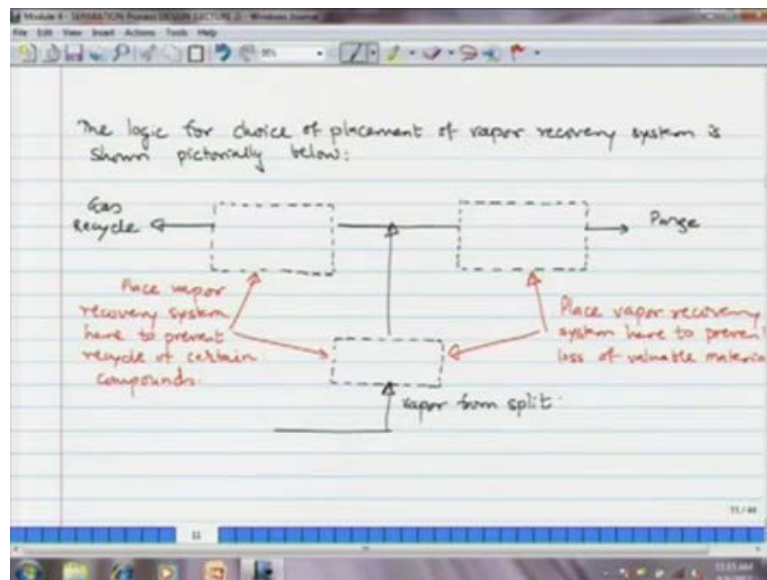 Module 4 - SEPARATION Process DESIGN (LECTURE 2) - Windows Journal
File Edit View Insert Actions Tools Help
The logic for choice of placement of vapor recovery system is
shown pictorially below:
Gas
Recycle
Purge
Place vapor
recovery system
here to prevent
recycle of certain
compounds.
Place vapor recovery
system here to preven
loss of valuable materia
vapor from split.
11 / 44
11